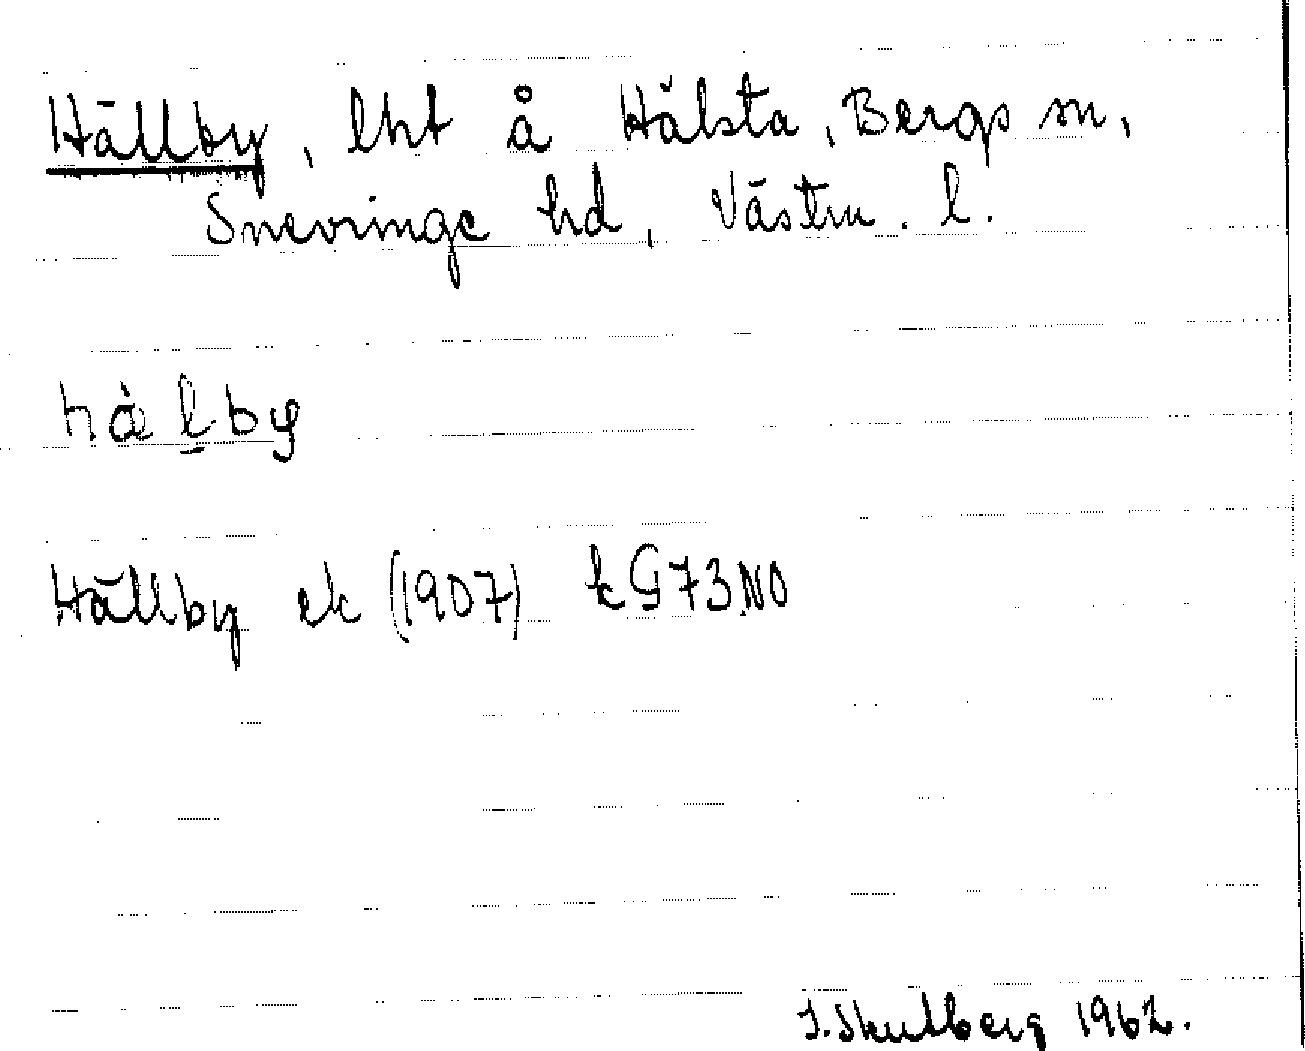 Hällby, lht å Hälsta, Bergs sn,
Snevringe hd, Västm. l.
hälby
Hällby ek (1907) k G73NO
J. Skulberg 1962.